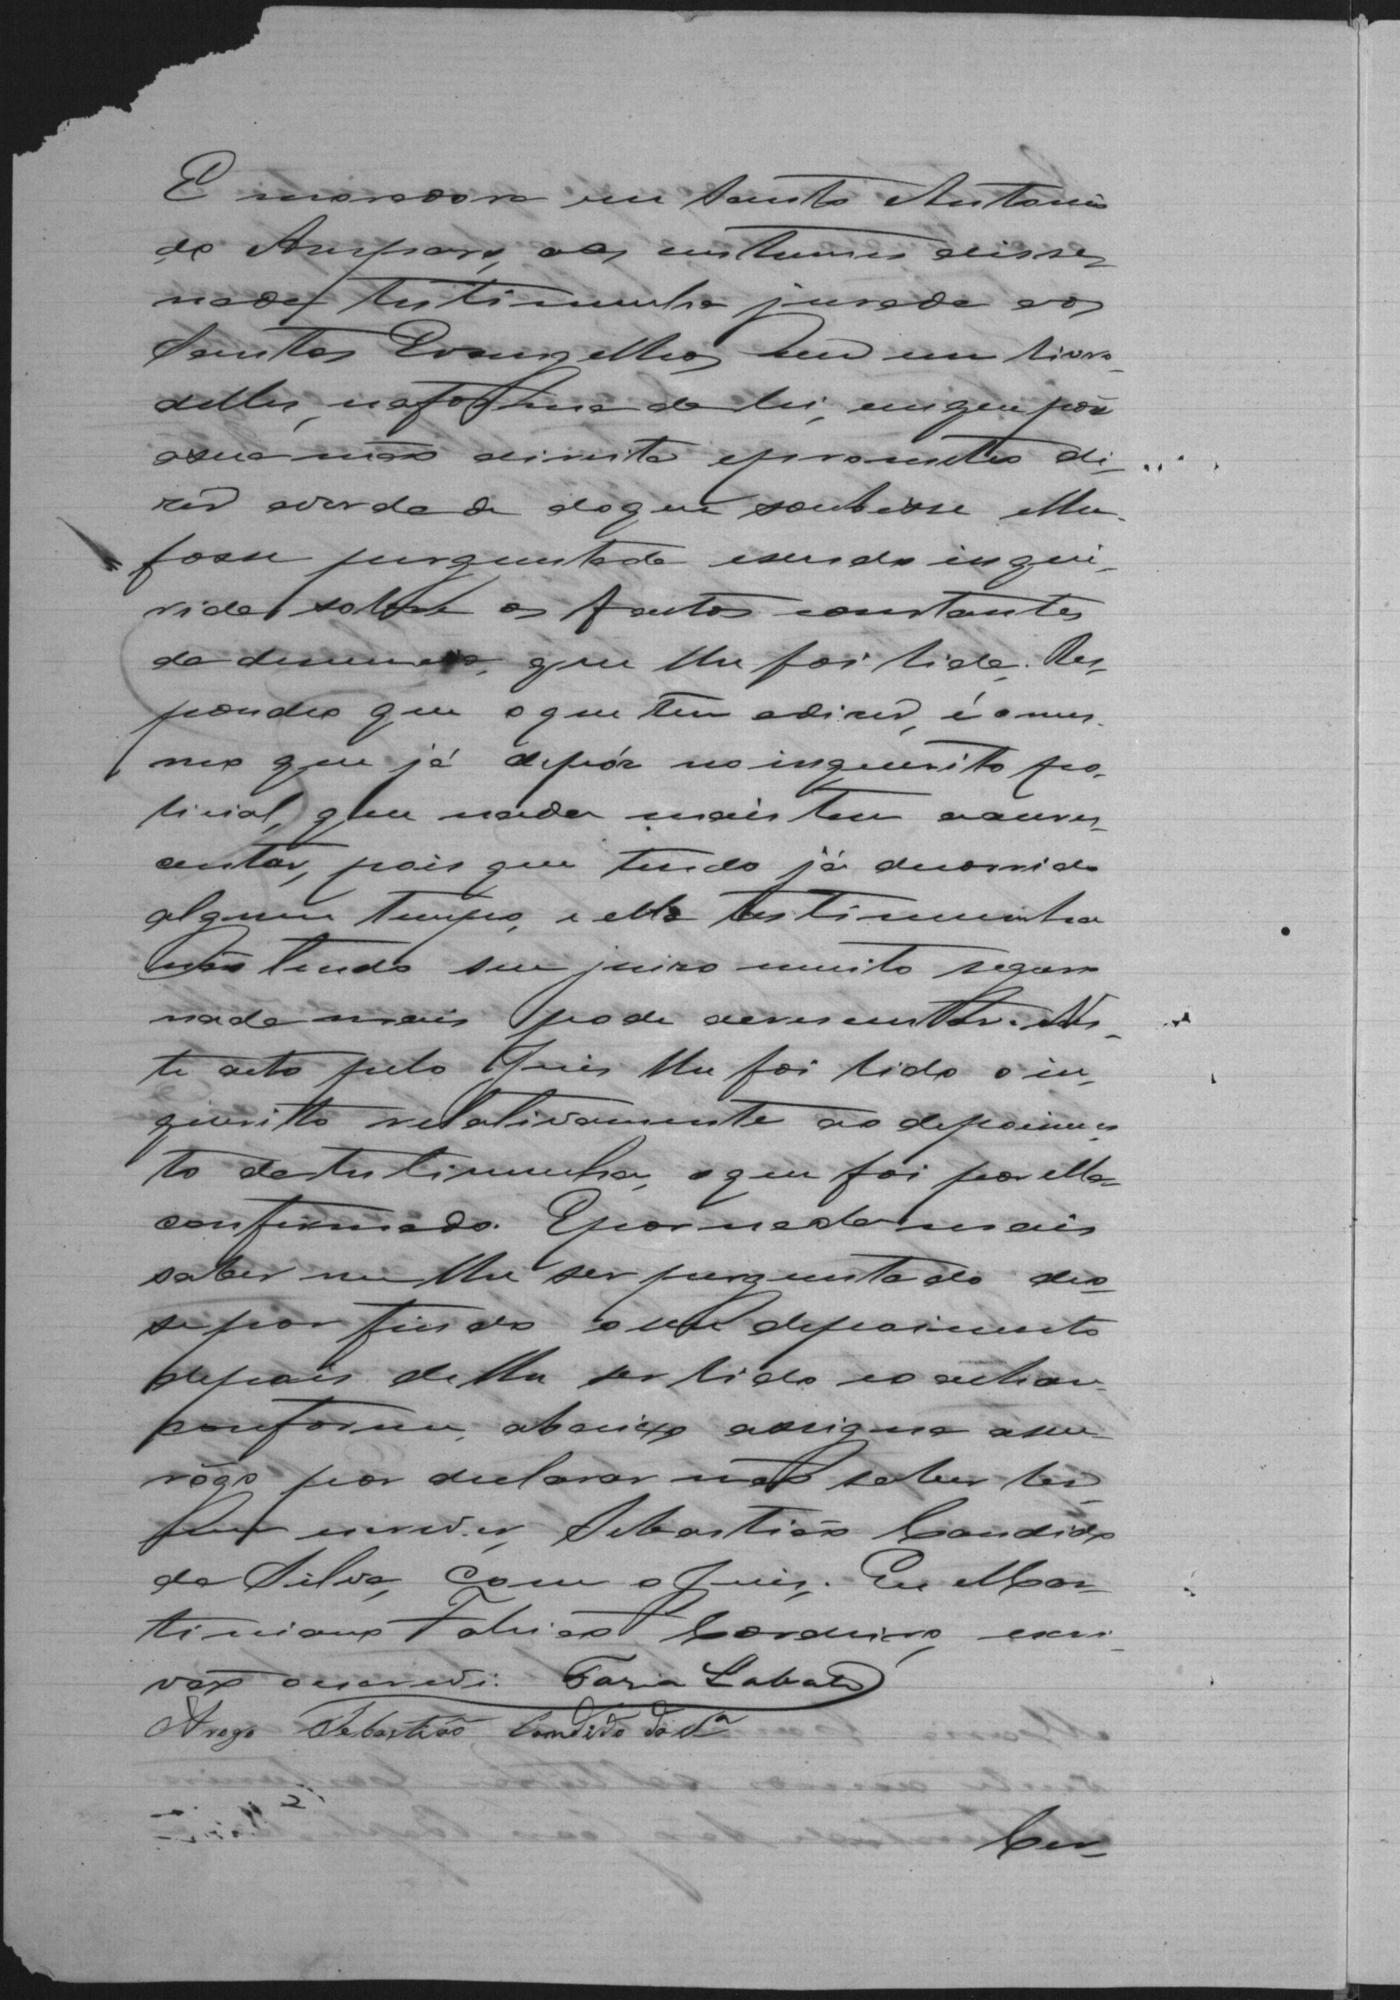 E moradora em Santo Antonio
do Amparo, aos custumes disse
nada, testimunha jurada aos
Santos Evangelhos em um livro
delles, na forma da lei, em que pôs
a sua mão direita e prometteo di-
zer a verdade do que soubesse e lhe
fosse perguntada e sendo inqui-
rida sobre os factos constantes
da denuncia, que lhe foi lida. Res-
pondeo que o que tem a dizer, é o mes-
mo que já depôz no inquerito po-
licial, que nada mais tem a acres-
centar, pois que tendo já decorrido
algum tempo, e ella testimunha
não tendo seu juizo muito seguro
nada mais pode acrescentar. Nes-
te acto pelo Juis lhe foi lido o in-
querito relativamente ao depoimen-
to da testimunha, o que foi por ella
confirmado. E por nada mais
saber nem lhe ser perguntado deo-
se por findo o seu depoimento
depois de lhe ser lido e o achar
conforme, abaixo assigna a seu
rôgo por declarar não saber ler
nem escrever, Sebastião Candido
da Silva, com o Juis. Eu Mar-
tiniano Fabião Cordeiro, escri-
vão o escrevi. Faria Lobato
A rogo Sebastião Candido da Sª
Cer-